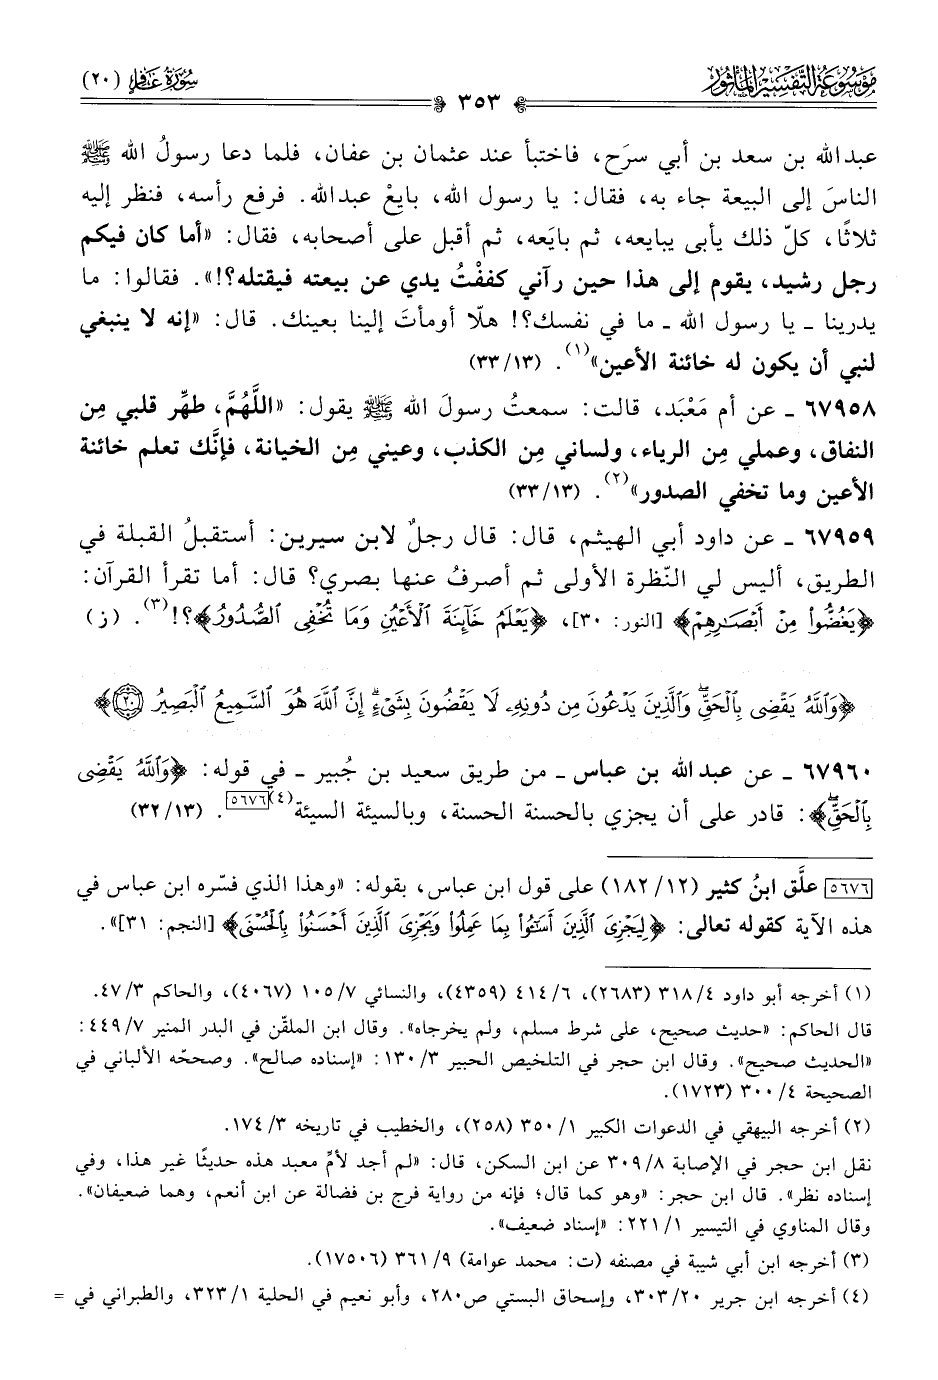 مَوْسُوعَةُ التَّفْسِيرِ المَأْثُورِ
٣٥٣
سُورَةُ غَافِرٍ (٢٠)
عبدالله بن سعد بن أبي سرَح، فاختبأ عند عثمان بن عفان، فلما دعا رسولُ الله ﷺ
الناسَ إلى البيعة جاء به، فقال: يا رسول الله، بايِعْ عبدالله. فرفع رأسه، فنظر إليه
ثلاثًا، كلّ ذلك يأبى يبايعه، ثم بايَعه، ثم أقبل على أصحابه، فقال: «أما كان فيكم
رجل رشيد، يقوم إلى هذا حين رآني كففْتُ يدي عن بيعته فيقتله؟!». فقالوا: ما
يدرينا ـ يا رسول الله ـ ما في نفسك؟! هلّا أومأتَ إلينا بعينك. قال: «إنه لا ينبغي
لنبي أن يكون له خائنة الأعين»(١). (١٣/ ٣٣)
٦٧٩٥٨ ـ عن أم مَعْبَد، قالت: سمعتُ رسولَ الله ﷺ يقول: «اللَّهُمَّ، طهِّر قلبي مِن
النفاق، وعملي مِن الرياء، ولساني مِن الكذب، وعيني مِن الخيانة، فإنَّك تعلم خائنة
الأعين وما تخفي الصدور»(٢). (١٣/ ٣٣)
٦٧٩٥٩ ـ عن داود أبي الهيثم، قال: قال رجلٌ لابن سيرين: أستقبلُ القبلة في
الطريق، أليس لي النّظرة الأولى ثم أصرفُ عنها بصري؟ قال: أما تقرأ القرآن:
﴿يَغُضُّوا۟ مِنْ أَبْصَـٰرِهِمْ﴾ [النور: ٣٠]، ﴿يَعْلَمُ خَآئِنَةَ ٱلْأَعْيُنِ وَمَا تُخْفِى ٱلصُّدُورُ﴾؟!(٣). (ز)
﴿وَٱللَّهُ يَقْضِى بِٱلْحَقِّۖ وَٱلَّذِينَ يَدْعُونَ مِن دُونِهِۦ لَا يَقْضُونَ بِشَىْءٍۗ إِنَّ ٱللَّهَ هُوَ ٱلسَّمِيعُ ٱلْبَصِيرُ ٢٠﴾
٦٧٩٦٠ ـ عن عبدالله بن عباس ـ من طريق سعيد بن جُبير ـ في قوله: ﴿وَٱللَّهُ يَقْضِى
بِٱلْحَقِّۖ﴾: قادر على أن يجزي بالحسنة الحسنة، وبالسيئة السيئة(٤)[٥٦٧٦]. (١٣/ ٣٢)
[٥٦٧٦] علَّق ابنُ كثير (١٢/ ١٨٢) على قول ابن عباس، بقوله: «وهذا الذي فسّره ابن عباس في
هذه الآية كقوله تعالى: ﴿لِيَجْزِىَ ٱلَّذِينَ أَسَـٰٓـُٔوا۟ بِمَا عَمِلُوا۟ وَيَجْزِىَ ٱلَّذِينَ أَحْسَنُوا۟ بِٱلْحُسْنَى﴾ [النجم: ٣١]».
(١) أخرجه أبو داود ٤/ ٣١٨ (٢٦٨٣)، ٦/ ٤١٤ (٤٣٥٩)، والنسائي ٧/ ١٠٥ (٤٠٦٧)، والحاكم ٣/ ٤٧.
قال الحاكم: «حديث صحيح، على شرط مسلم، ولم يخرجاه». وقال ابن الملقّن في البدر المنير ٧/ ٤٤٩:
«الحديث صحيح». وقال ابن حجر في التلخيص الحبير ٣/ ١٣٠: «إسناده صالح». وصححّه الألباني في
الصحيحة ٤/ ٣٠٠ (١٧٢٣).
(٢) أخرجه البيهقي في الدعوات الكبير ١/ ٣٥٠ (٢٥٨)، والخطيب في تاريخه ٣/ ١٧٤.
نقل ابن حجر في الإصابة ٨/ ٣٠٩ عن ابن السكن، قال: «لم أجد لأمّ معبد هذه حديثًا غير هذا، وفي
إسناده نظر». قال ابن حجر: «وهو كما قال؛ فإنه من رواية فرج بن فضالة عن ابن أنعم، وهما ضعيفان».
وقال المناوي في التيسير ١/ ٢٢١: «إسناد ضعيف».
(٣) أخرجه ابن أبي شيبة في مصنفه (ت: محمد عوامة) ٩/ ٣٦١ (١٧٥٠٦).
(٤) أخرجه ابن جرير ٢٠/ ٣٠٣، وإسحاق البستي ص٢٨٠، وأبو نعيم في الحلية ١/ ٣٢٣، والطبراني في =